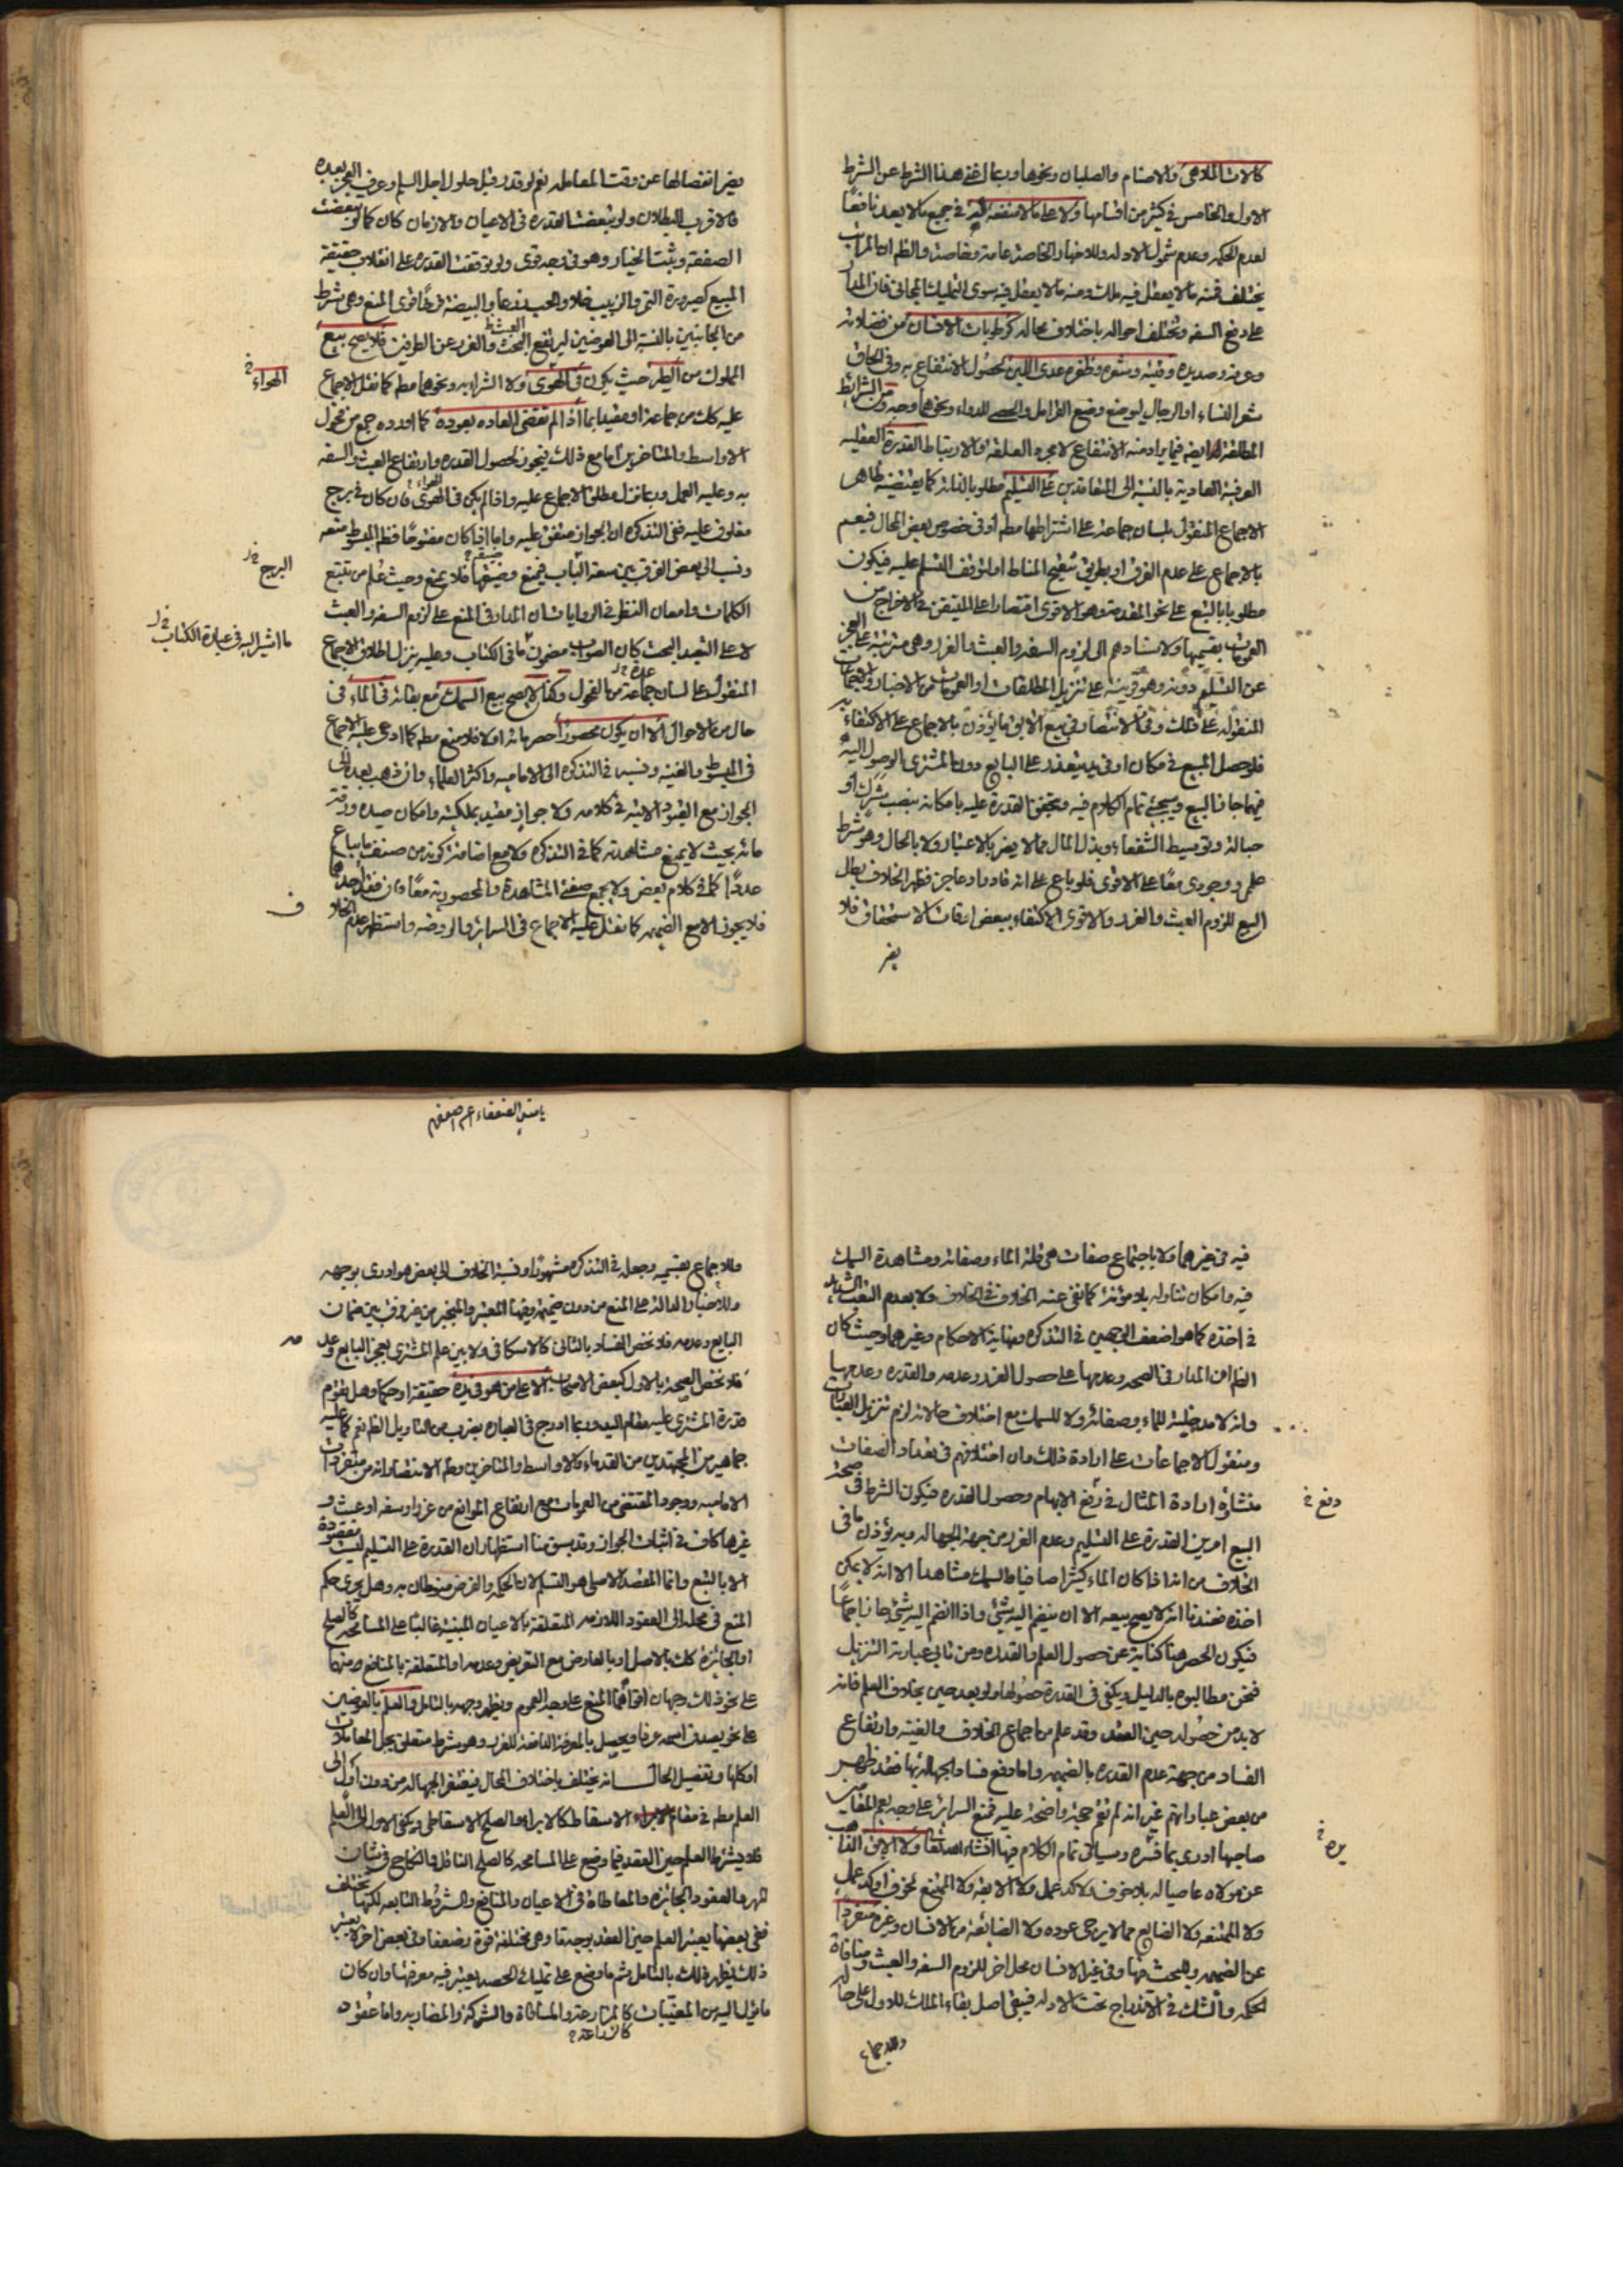 كالات الملاهى والاصنام والصلبان ونحوها وربما اغنى هذا الشرط عن الشرط
الاول والخامس فى كثير من اقسامها ولا على ما لا منفعة فيه فى جميع ما لا يعد نافعًا
لعدم الحكمة وعدم شمول الادلة وللاخبار الخاصة عامة وخاصة والظ ان المراتب
يختلف فمنه ما لا يعقل فيه ملك ومنه ما لا يعقل فيه سوى التمليك المجانى فان المدار
على دفع السفه وتختلف احواله باختلاف محاله كرطوبات الانسان من فضلاته
وعرقه وصديده وقيئه وشعره وظفره عدى اللبن لحصول الانتفاع به وفى الحاق
شعر النساء او الرجال ليوضع وضع القرامل والحصى للدواء ونحوهما وجه ومن الشرائط
المطلقة ايضا فيما يراد منه الانتفاع لا مجرد العلقة والارتباط القدرة العقليه
العرفية العادية بالنسبة الى المتعاقدين على التسليم مطلوبا بالذات كما يقتضيه ظاهر
الاجماع المنقول بلسان جماعة على اشتراطها مطم او فى خصوص بعض المحال فيعم
بالاجماع على عدم الفرق او بطريق تنقيح المناط او لتوقف التسلم عليه فيكون
مطلوبا بالتبع على نحو المقدمة وهو الاقوى اقتصارا على المتيقن فى الاخراج من
العمومات بقسميها ولاستنادهم الى لزوم السفه والعبث والغرر وهى مترتبة على العجز
عن التسلم دونه وهو قرينة على تنزيل المطلقات او العمومات من الاخبار والاجماعات
المنقولة على ذلك وفى الانتصار فى بيع الابق ما يؤذن بالاجماع على الاكتفاء به
فلو حصل المبيع فى مكان او فى يد يتعذر على البايع دون المشترى الوصول اليه
فيهما جاز البيع وسيجئ تمام الكلام فيه وتحقق القدرة عليه بامكانه بنصب شرك او
حبالة وتوسيط الشفعاء وبذل المال مما لا يضر بالاعتبار ولا بالحال وهو شرط
علمى ووجودى معًا على الاقوى فلو باع على انه قادر او عاجز فظهر الخلاف بطل
البيع للزوم العبث والغرر والاقوى الاكتفاء ببعض اوقات الاستحقاق فلا
يضر
يضر انفصالها عن وقت المعاملة نعم لو قدر قبل حلول اجل السلم وعرف العجز بعده
فالاقرب البطلان ولو تبعضت القدرة فى الاعيان والازمان كان كما لو تبعضت
الصفقة وثبت الخيار وهو فى وجه قوى ولو توقفت القدرة على انقلاب حقيقة
المبيع كصيرورة التمر والزبيب خلا والحب زرعا والبيضة فرخًا قوى المنع وهى شرط
من الجانبين بالنسبة الى العوضين ليرتفع العبث والغرر عن الطرفين فلا يصح بيع
المملوك من الطير حيث يكون فى الهوى ولا الشراء به ونحوهما مطم كما نقل الاجماع
عليه كك من جماعة او مقيدا بما اذا لم تقضى العاده بعوده كما اورده جمع من فحول
الاواسط والمتاخرين اما مع ذلك فيجوز لحصول القدرة وارتفاع العبث والسفه
به وعليه العمل وربما نزل مطلق الاجماع عليه واذا لم يكن فى الهوى فان كان فى برج
مغلوق عليه ففى التذكره ان الجواز متفق عليه واما اذا كان مفتوحًا فظ المبسوط منعه
ونسب الى بعض الفرق بين سعة الباب فيمنع وضيقها فلا يمنع وحيث علم من تتبع
الكلمات وامعان النظر فى الروايات ان المدار فى المنع على لزوم السفه والعبث
لا على التعبد البحت كان الصواب مضمون ما فى الكتاب وعليه ينزل اطلاق الاجماع
المنقول على لسان جماعة من الفحول وكذا لا يصح بيع السمك مع بقائه فى الماء فى
حال من الاحوال الا ان يكون محصورًا حصر مائه اولا فلا منع مطم كما ادعى عليه الاجماع
فى المبسوط والغنيه ونسبه فى التذكره الى الاماميه واكثر العلماء وان ذهب بعده الى
الجواز مع القيود الاتية فى كلامه ولا جواز مقيد بملكيته وامكان صيده ورقة
مائه بحيث لا يمنع مشاهدته كما فى التذكره ولا مع اضافة كونه من صنف ما يباع
عددًا كما فى كلام بعض ولا يجمع صفتى المشاهدة والمحصورية معًا وان فقد احدهما
فلا يجوز الا مع الضميمه كما نقل عليه الاجماع فى السرائر والروضه واستظهر عدم الخلاف
الهواء خ
البرج خ ل
ما اشير اليه فى عبارة الكتاب خ ل
ف
فيه فى غيرهما ولا باجتماع صفات هى قلة الماء وصفائه ومشاهدة السمك
فيه وامكان تناوله بلا مؤنة كما نفى عنه الخلاف فى الخلاف ولا بعدم التعب الشديد
فى اخذه كما هو اضعف الوجهين فى التذكره ونهاية الاحكام وغيرهما وحيث كان
الظاهر ان المدار فى الصحه وعدمها على حصول الغرر وعدمه والقدره وعدمها
وانه لا مدخلية للماء وصفائه ولا للسمك مع اختلاف حالاته لزم تنزيل العبارات
ومنقول الاجماعات على ارادة ذلك وان اختلافهم فى تعداد الصفات
منشاؤه ارادة المثال فى رفع الابهام وحصول القدره فيكون الشرط فى صحة
البيع امرين القدرة على التسليم وعدم الغرر من جهة الجهاله وبه يؤذن ما فى
الخلاف من انه اذا كان الماء كثيرا صافيا والسمك مشاهدا الا انه لا يمكن
اخذه فعندنا انه لا يصح بيعه الا ان ينضم اليه شئ واذا انضم اليه شئ جاز اجماعًا
فيكون الحصر هنا كناية عن حصول العلم والقدره ومن نابى عبارته التنزيل
فنحن مطالبوه بالدليل ويكفى فى القدرة حصولها ولو بعد حين بخلاف العلم فانه
لا بد من حصوله حين العقد وقد علم من اجماع الخلاف والغنية وارتفاع
الفساد من جهة عدم القدره بالضميمه واما دفع فساد الجهالة بها فقد ظهر
من بعض عباراتهم غير انه لم تقم حجة واضحة عليه فمنع السرائر على وجه يعم المقامين
صاحبها ادرى بما فسره وسياتى تمام الكلام فيها انشاء الله تعالى ولا الابق الذاهب
عن مولاه عاصيا له بلا خوف ولا كد عمل ولا الابقة ولا الممتنع لخوف او كد عمل
ولا الممتنعه ولا الضايع مما لا يرجى عوده ولا الضائعة من الانسان وغيره منفردا
عن الضميمه وللبحث فيها وفى غير الانسان محل اخر للزوم السفه والعبث ومنافاة
الحكمه والشك فى الاندراج تحت الادله فيبقى اصل بقاء الملك للاول على حاله
وللاجماع
دفع خ
ين خ
يا معين الضعفاء
وللاجماع بقسميه وجعله فى التذكره مشهورًا ونسبة الخلاف الى بعض هو ادرى بوجهه
وللاخبار الدالة على المنع من دون ضميمة وفيها المعتبر والمنجبر من غير فرق بين ضمان
البايع وعدمه فلا نخص الفساد بالثانى كالاسكافى ولا بين علم المشترى بعجز البايع وعدمه
فلا نخص الصحة بالاول كبعض الاصحاب الا على من هو فى يده حقيقة او حكما وهل يقوم
قدرة المشترى عليه مقام اليد وربما ادرج فى العباره بضرب من التاويل الظ نعم كما عليه
جماهير من المجتهدين من القدماء والاواسط والمتاخرين وظ الانتصار انه من متفردات
الامامية ووجود المقتضى من العمومات مع ارتفاع الموانع من غرر او سفه او عبث و
غيرها كاف فى اثبات الجواز وقد سبق منا استظهار ان القدرة على التسليم ليست مقصودة
الا بالتبع وانما المقصد الاصلى هو التسلم لان الحكمة والغرض منوطان به وهل يجرى حكم
المنع فى محله الى العقود اللازمه المتعلقة بالاعيان المبنية غالبًا على المسامحة كالصلح
او الجائزة كك بالاصل او بالعارض مع التعويض وعدمه او المتعلقة بالمنافع ومنها
على نحو ذلك وجهان اقواهما المنع على وجه العموم ويظهر وجهه بالتامل والعلم بالعوضين
على نحو يصدق اسمه عرفا ويحصل بالمعرفة الدافعة للغرر وهو شرط متعلق بجل المعاملات
او كلها وتفصيل الحال انه يختلف باختلاف المحال فيغتفر الجهالة من دون أول الى
العلم مطم فى مقام الاسقاط كالابراء والصلح الاسقاطى ويكفى الاول الى العلم
فلا يشترط العلم حين العقد فيما وضع على المسامحه كالصلح الناقل والنكاح فى شان
المهر والعقود الجائزة والمعاطاة فى الاعيان والمنافع والشروط التابعه لكنها تختلف
ففى بعضها يعتبر العلم حين العقد بوجه ما وهى مختلفة قوة وضعفا وفى بعض اخر لا يعتبر
ذلك يظهر ذلك بالتامل ثم ما وضع على تمليك الحصص يعتبر فيه معرفتها وان كان
ما يؤل اليه من المغيبات كالمزارعة والمساقاة والشركة والمضاربه واما عقود
كالزراعة خ